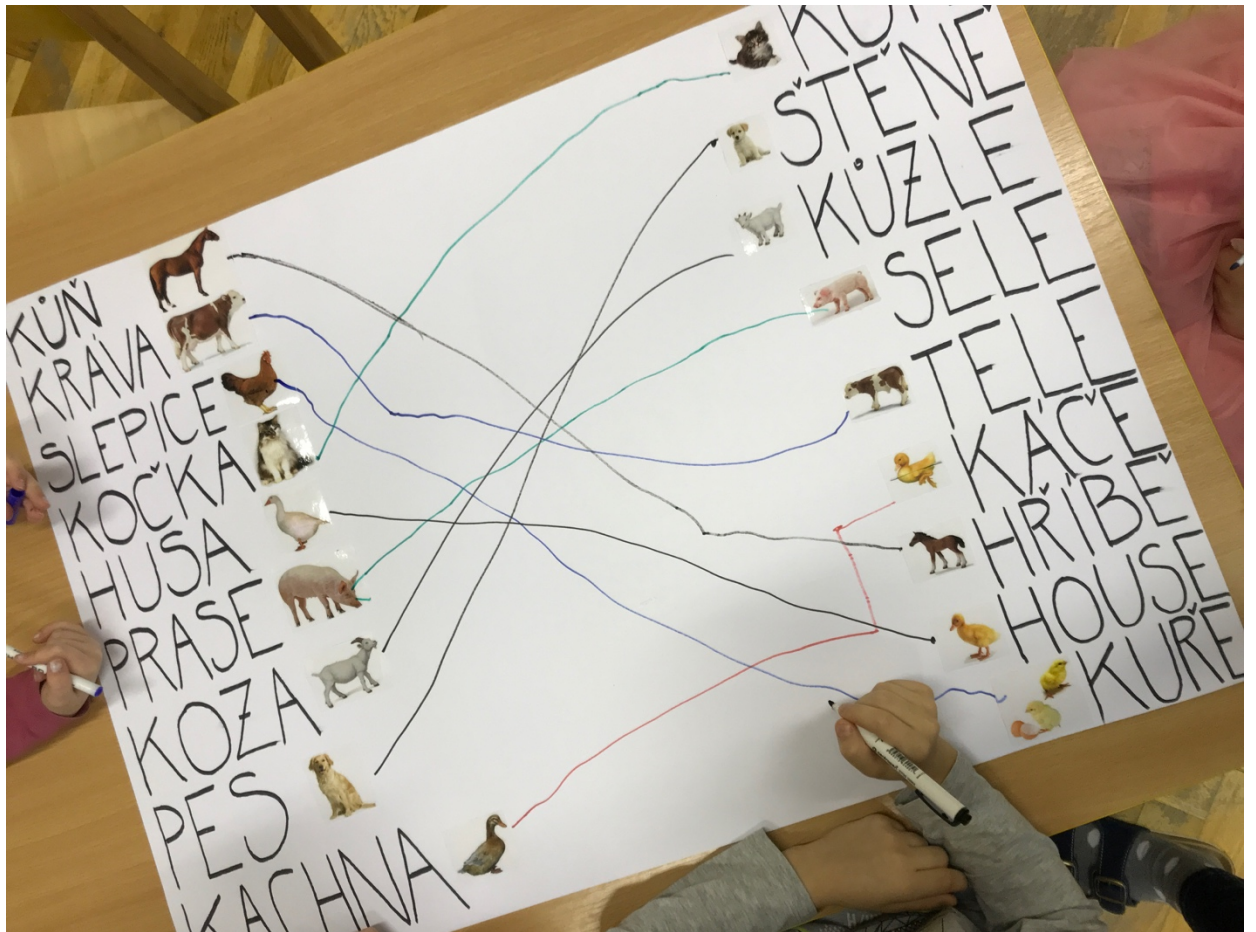 KŮŇ
KRÁVA
SLEPICE
KOČKA
HUSA
PRASE
KOZA
PES
KACHNA
ŠTĚNĚ
KŮZLE
SELE
TELE
KÁČE
HŘÍBĚ
HOUSE
KUŘE